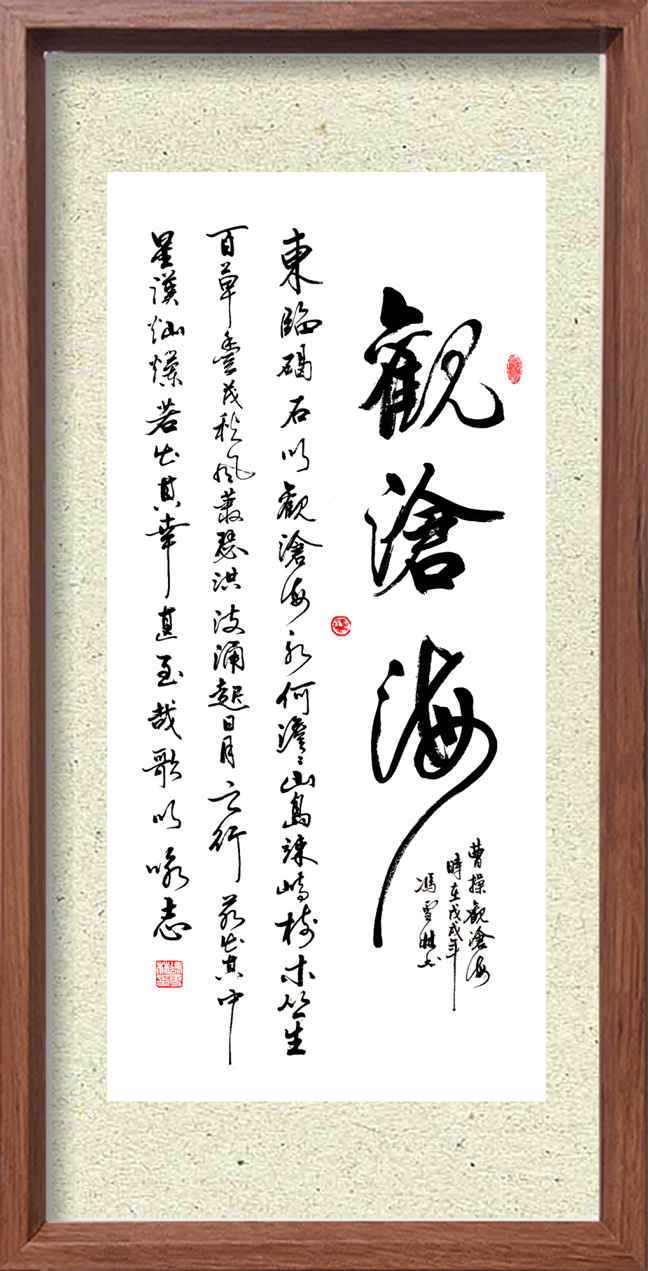 觀滄海
曹操觀滄海
時在戊戌年
馮雪林书
東臨碣石以觀滄海水何澹〻山島竦峙树木丛生
百草豐茂秋風蕭瑟洪波涌起日月之行若出其中
星漢灿爛若出其幸甚至哉歌以咏志